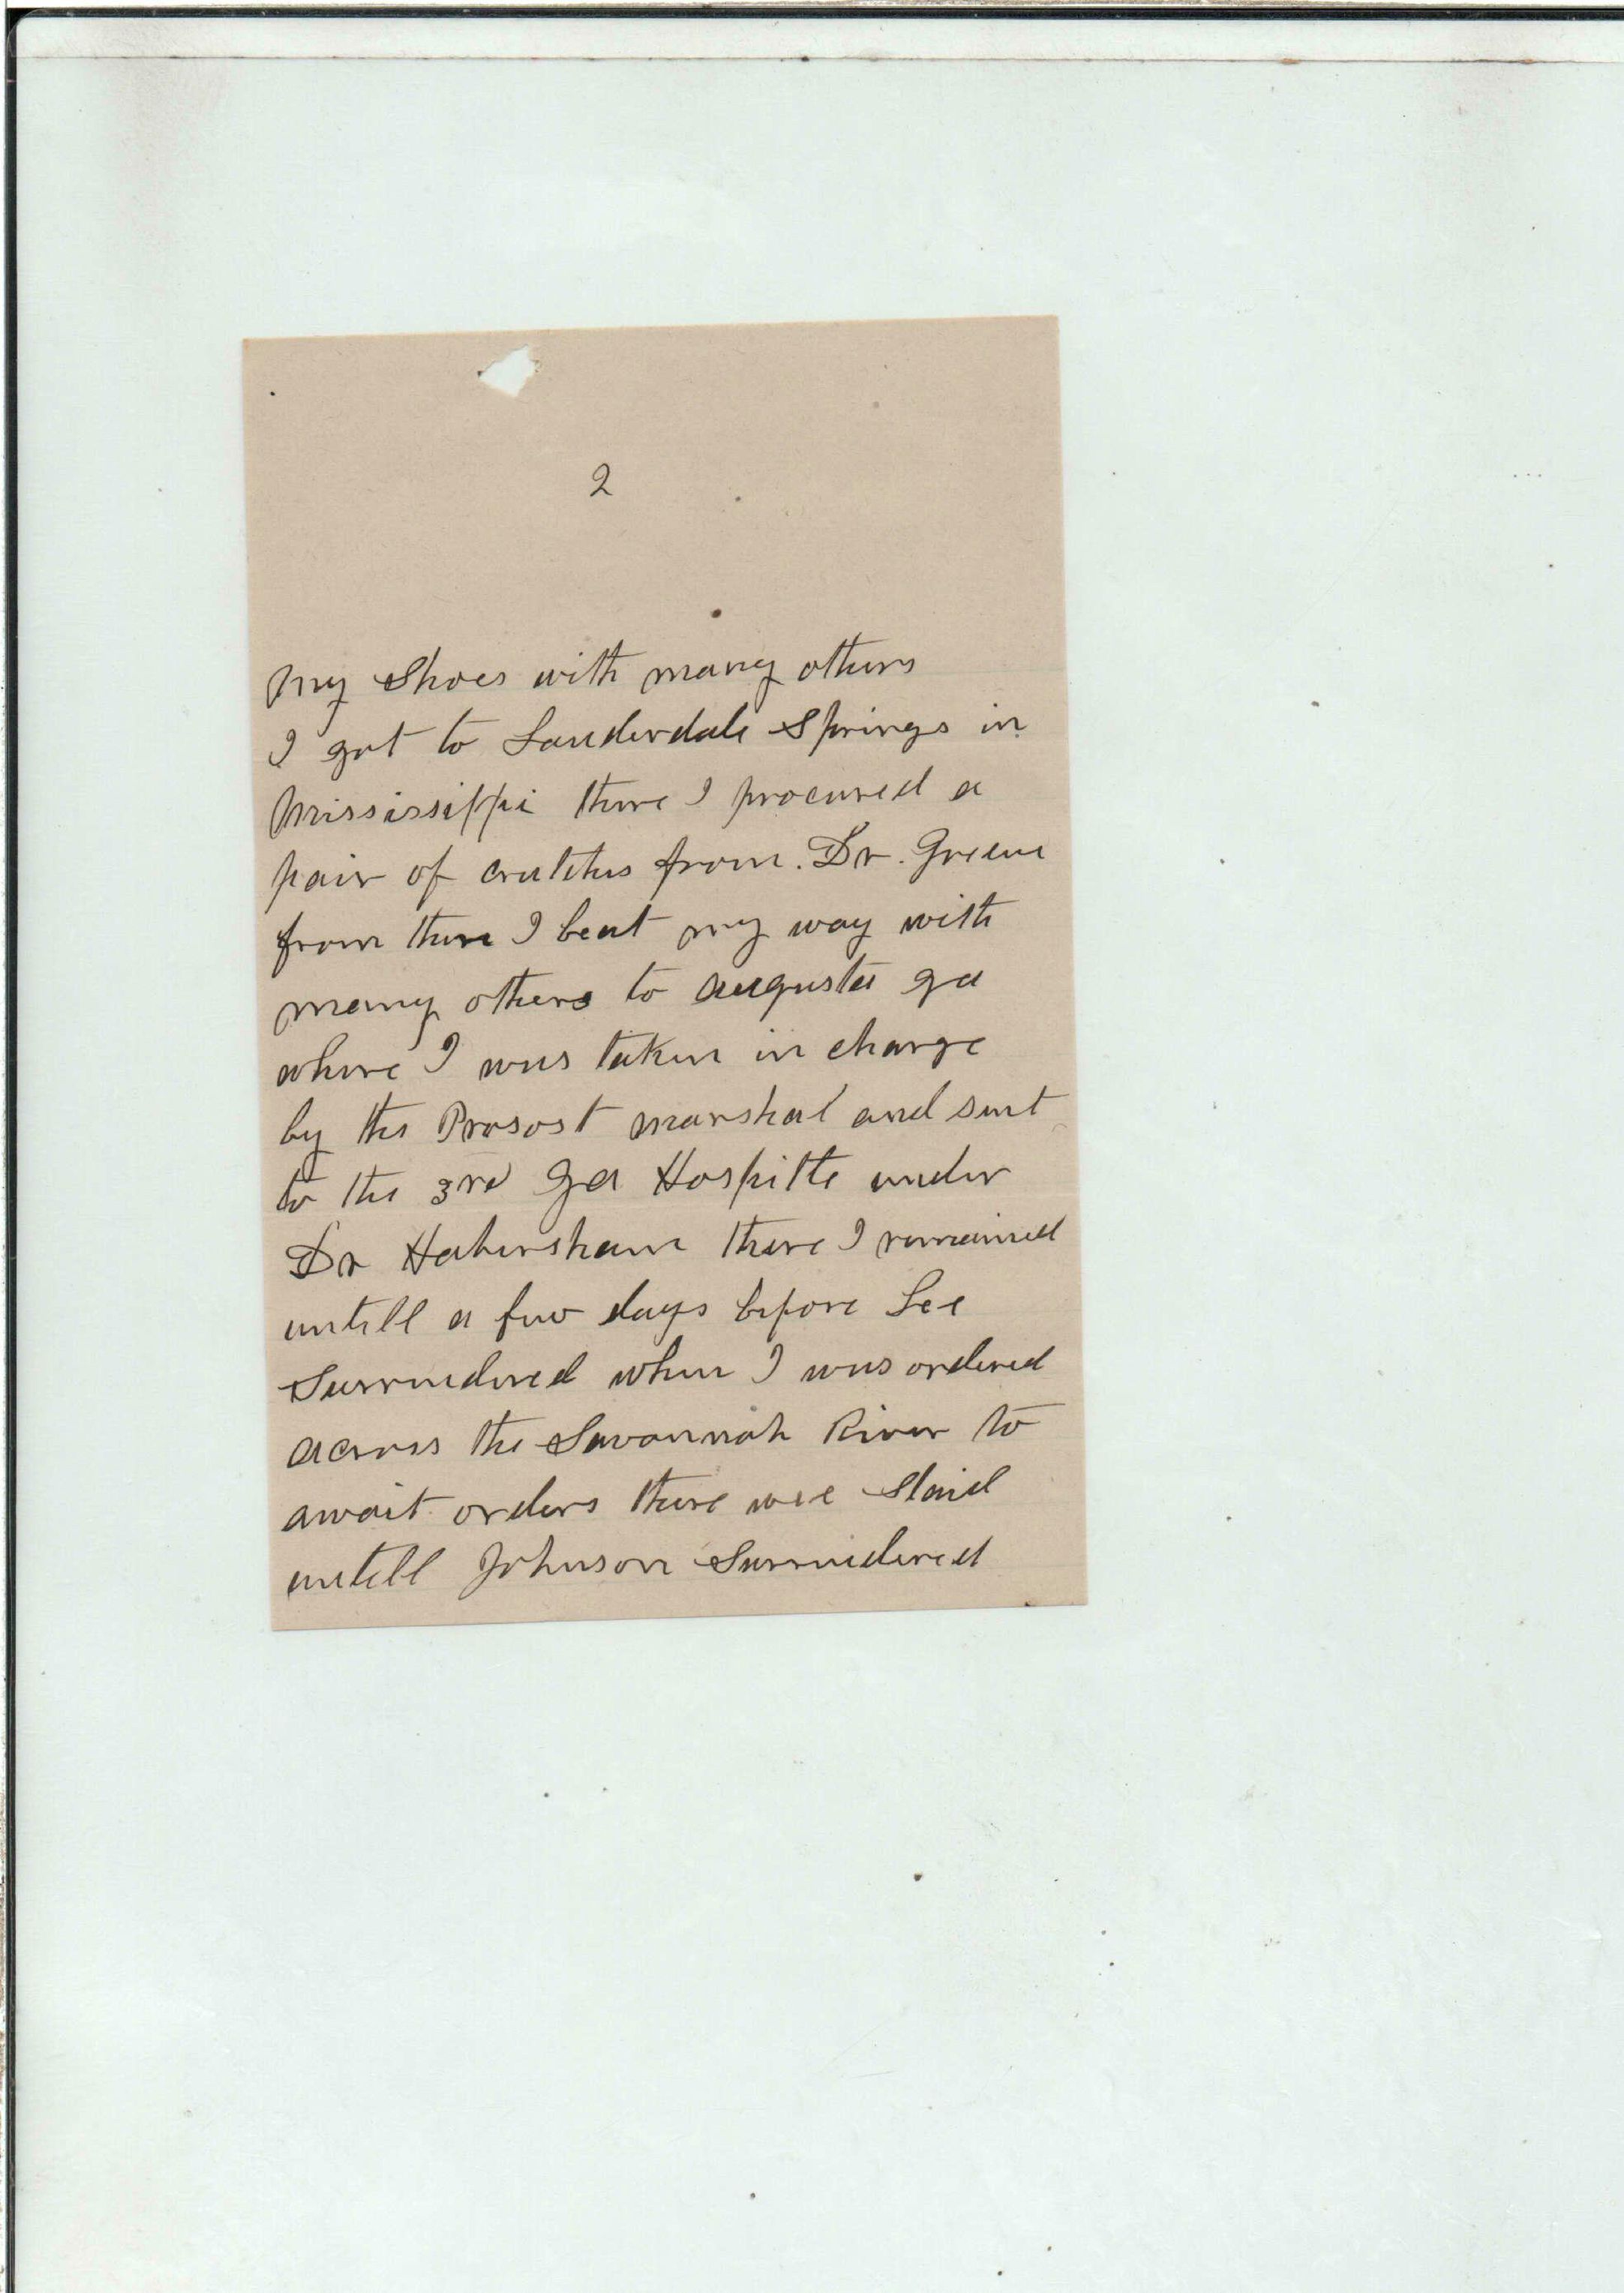 2
my shoes with many others
I got to Lauderdale Springs in
Mississippi there I procured a
pair of crutches from. Dr. Green
from there I beat my way with
many others to augusta ga
where I was taken in charge
by the Provost marshal and sent
to the 3rd Ga Hospitle under
Dr Habersham there I remained
untill a few days before Lee
Surrendered when I was ordered
across the Savannah River to
await orders there wee staid
untill Johnson Surrendered